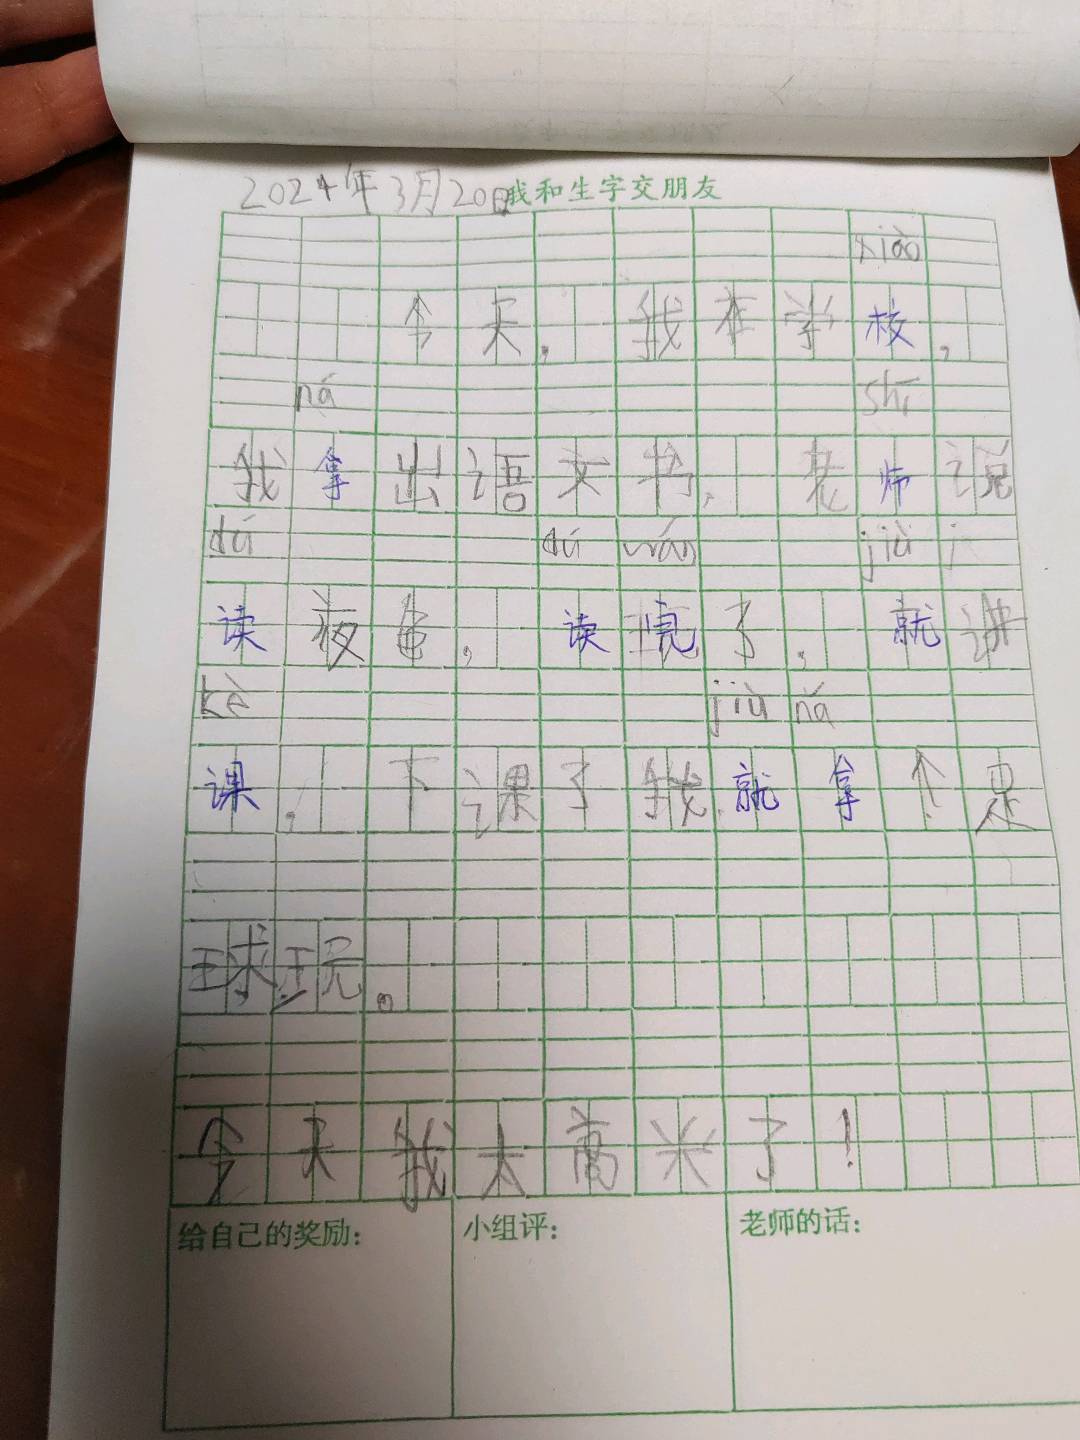 2024年3月20日我和生字交朋友
xiào
今天,我在学校,
ná shī
我拿出语文书,老师说
dú dú wán jiù j
读夜色,读琓了,就讲
kè jiù ná
课,下课了我就拿个足
球玩。
今天我太高兴了!
给自己的奖励: 小组评: 老师的话: